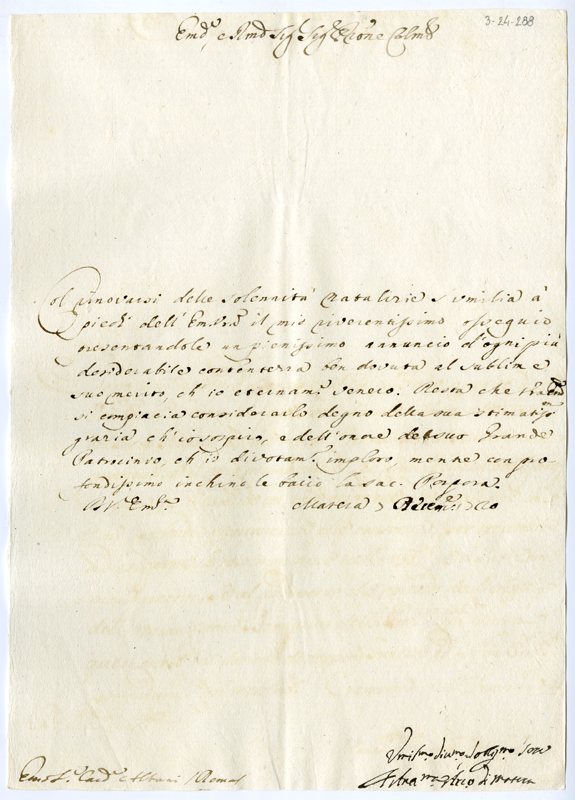 3-24-288
Em.º e Rmo Sig.r Sig.r Pron.e Colmo
Col rinovarsi delle solennità natalizie s'umilia à
piedi dell'Em.V.ra il mio riverentissimo ossequio
presentandole un pienissimo annuncio d'ogni più
desiderabile contentezza ben dovuta al sublime
suo merito, ch'io eternam.te venero. Resta che
si compiacia considerarlo degno della sua stimatis.a
grazia, ch'io sospiro, e dell'onore del suo Grande
Patrocinio, ch'io divotam.te imploro, mentre con pro
fondissimo inchino le bacio la sac. Porpora.
Di V. Em.za Matera Decem.e
Umilmo divmo
di Matera
Emo S.r Card.e Albani / Roma